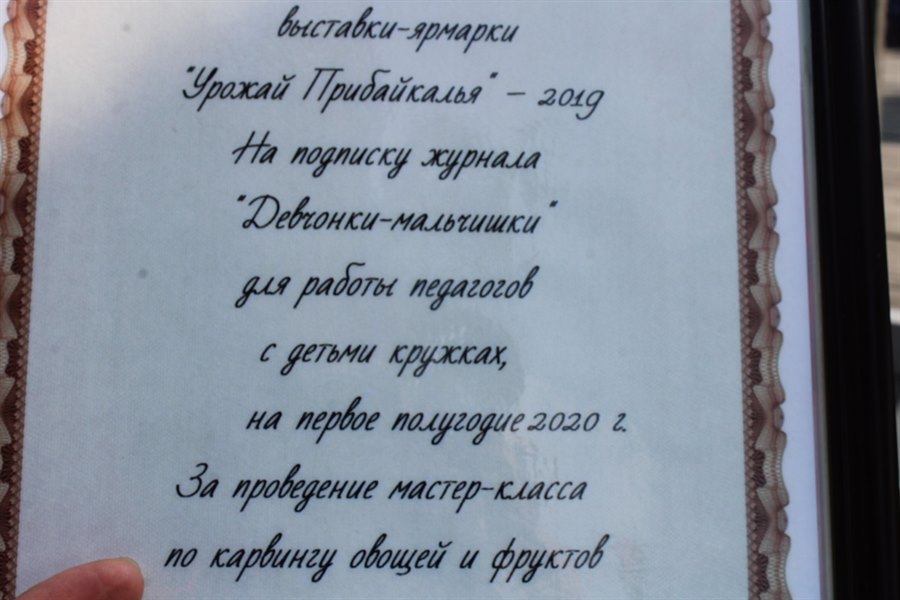 выставки-ярмарки
"Урожай Прибайкалья" - 2019
На подписку журнала
"Девчонки-мальчишки"
для работы педагогов
с детьми кружках,
на первое полугодие 2020 г.
За проведение мастер-класса
по карвингу овощей и фруктов